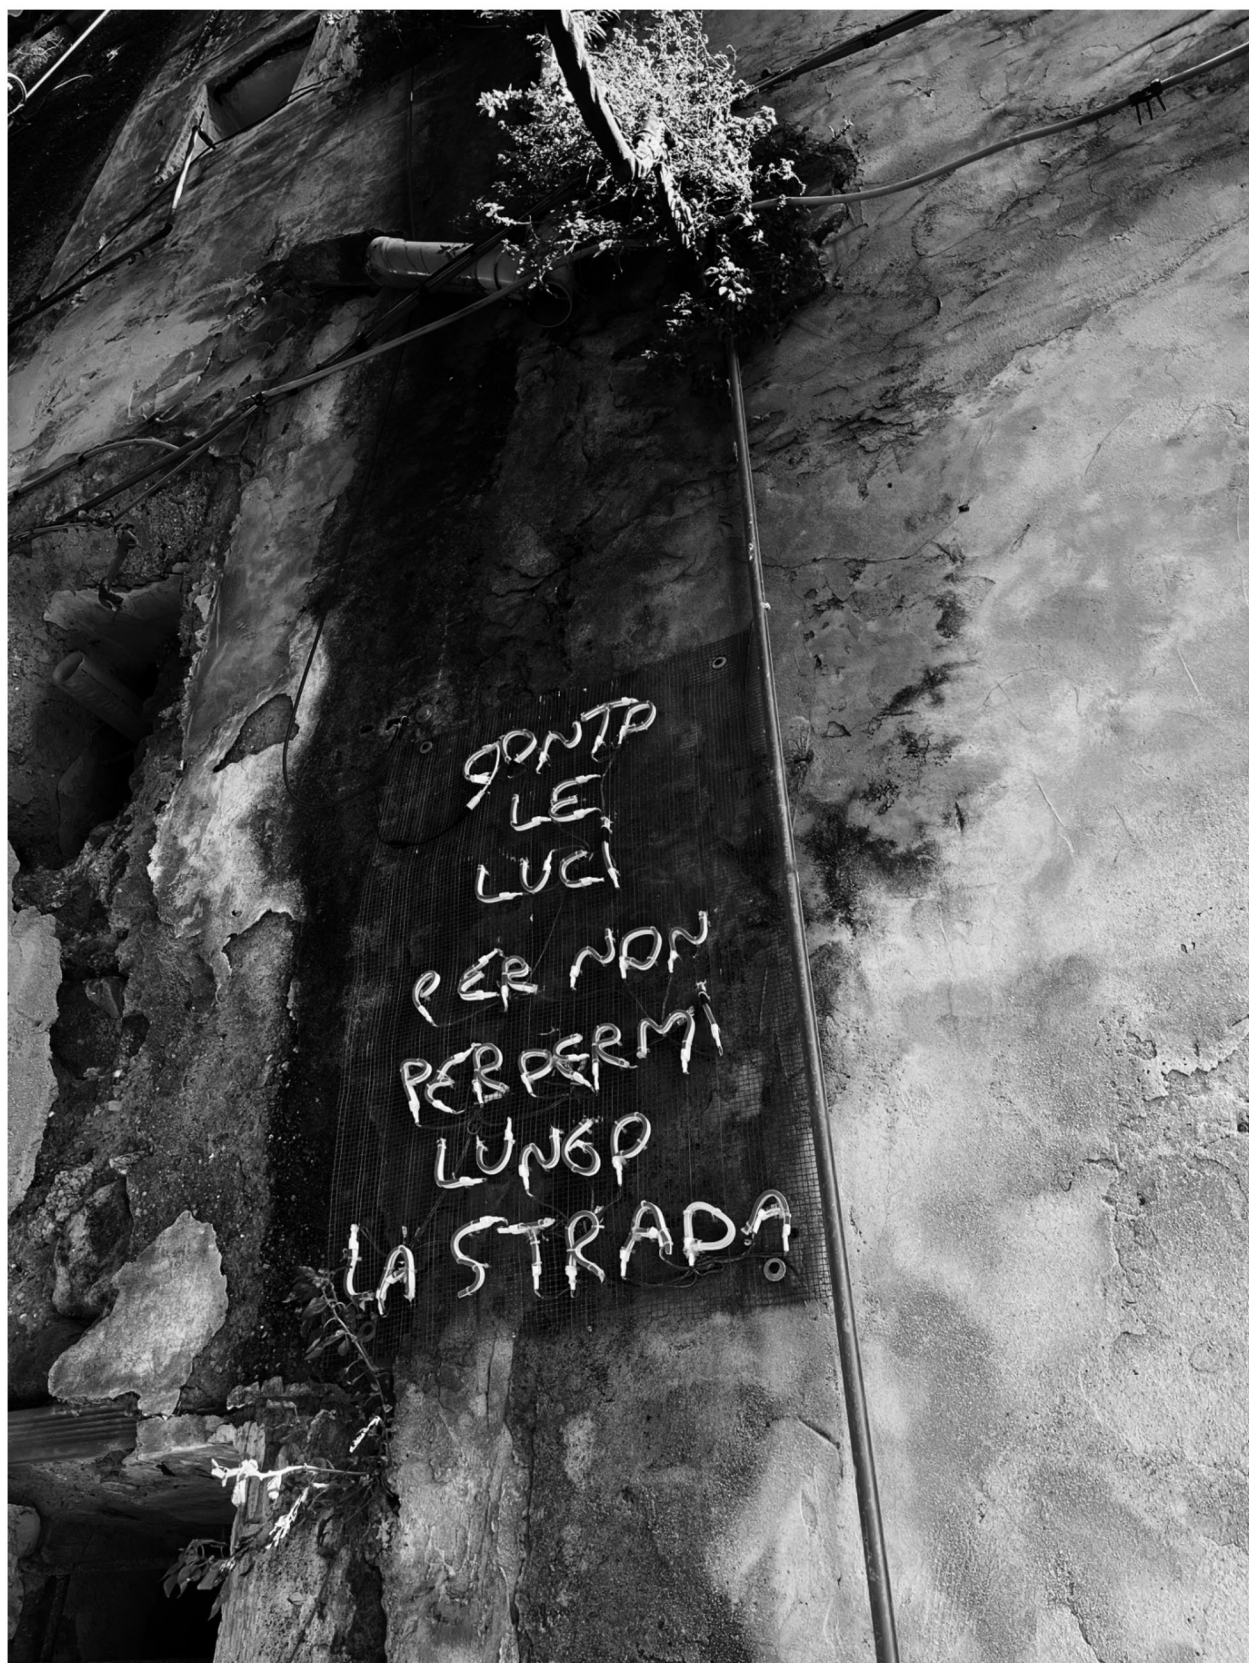 CONTO
LE
LUCI
PER NON
PERDERMI
LUNGO
LA STRADA